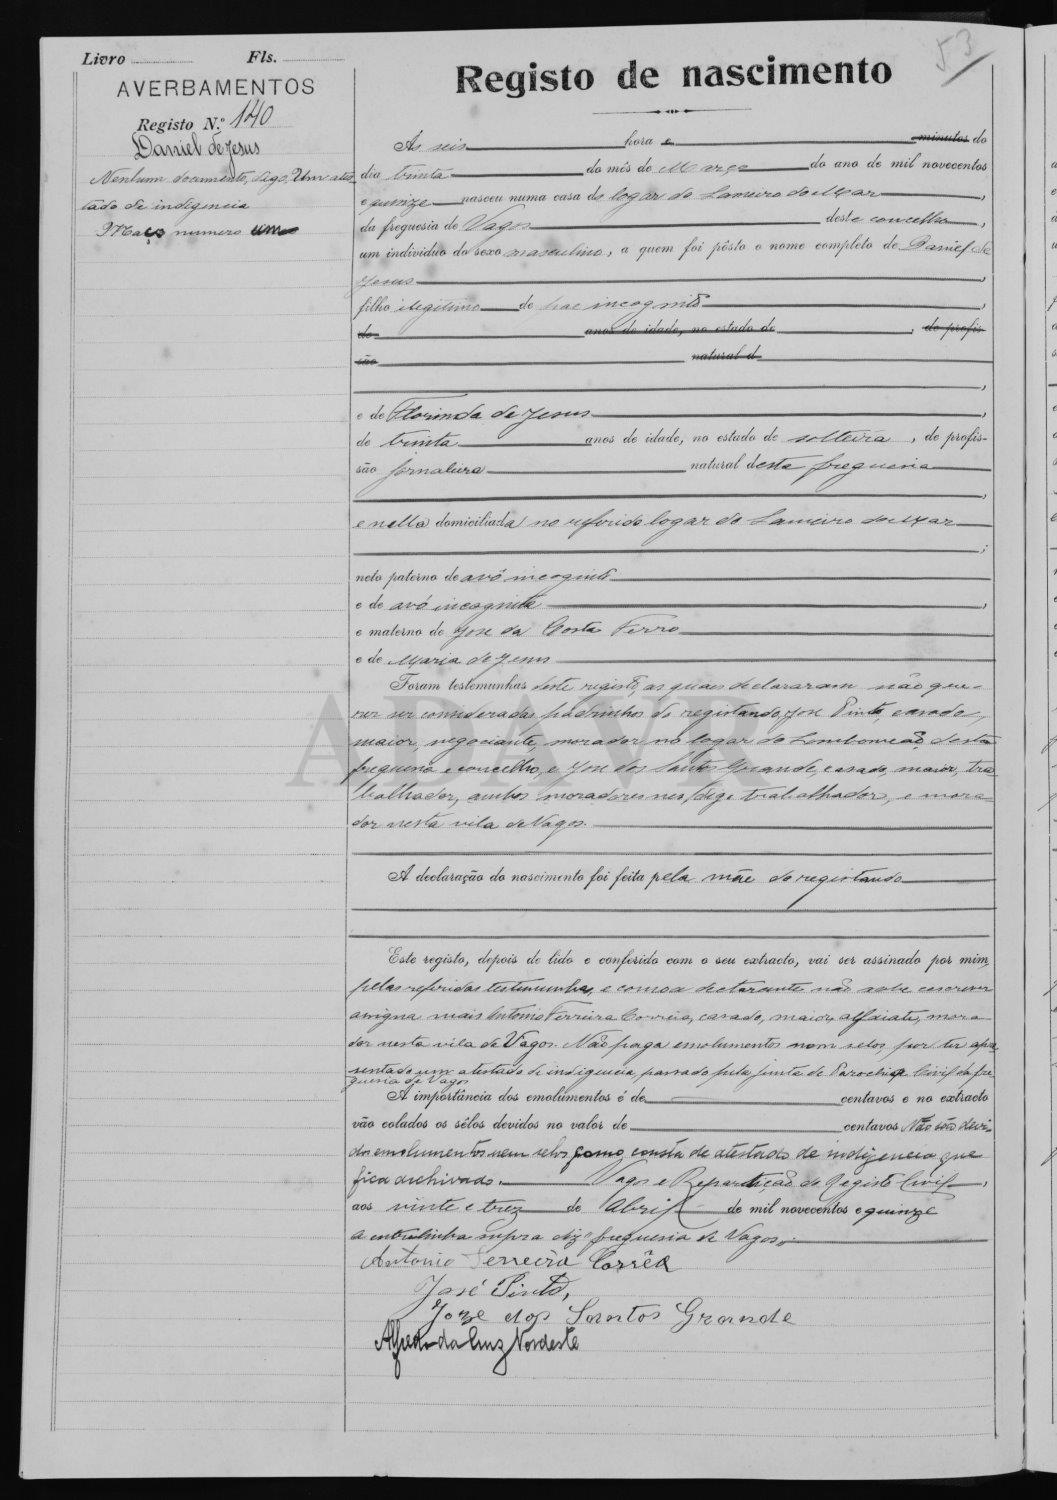 53
Livro Fls.
AVERBAMENTOS
Registo N.º 140
Daniel de Jesus
Nenhum documento, digo, Um ates
tado de indigencia
Maço numero um
Registo de nascimento
Às seis hora e minutos do
dia trinta do mês de Março do ano de mil novecentos
e quinze nasceu numa casa do logar do Lameiro do Mar,
da freguesia de Vagos deste concelho,
um individuo do sexo masculino, a quem foi pôsto o nome completo de Daniel de
Jesus,
filho ilegitimo de pae incognito,
de anos de idade, no estado de, de profis-
são natural d
,
e de Florinda de Jesus,
de trinta anos de idade, no estado de solteira, de profis-
são jornaleira natural desta freguesia
,
e nella domiciliada no referido logar do Lameiro do Mar
;
neto paterno de avô incognito
e de avó incognita,
e materno de José da Costa Ferro
e de Maria de Jesus
Foram testemunhas deste registo, as quaes declararam não que-
rer ser consideradas padrinhos do registando, José Pinto, casado,
maior, negociante, morador no logar do Lombomeão, desta
freguesia e concelho, e José dos Santos Grande, casado, maior, tra
balhador, ambos moradores nes, digo trabalhador, e mora-
dor nesta vila de Vagos.
A declaração do nascimento foi feita pela mãe do registando
Este registo, depois de lido e conferido com o seu extracto, vai ser assinado por mim,
pelas referidas testemunhas, e como a declarante não sabe escrever
assigna mais Antonio Ferreira Corrêa, casado, maior, alfaiate, mora-
dor nesta vila de Vagos. Não paga emolumentos nem selos, por ter apre
sentado um atestado de indigencia, passado pela junta de Parochia Civil da fre
guesia de Vagos
A importância dos emolumentos é de centavos e no extracto
vão colados os sêlos devidos no valor de centavos Não são devi
dos emolumentos nem selos como consta de atestado de indigencia que
fica archivado. Vagos e Repartição do Registo Civil,
aos vinte e trez de Abril de mil novecentos e quinze
A entrelinha supra diz: freguesia de Vagos.
Antonio Ferreira Corrêa
José Pinto,
Joze dos Santos Grande
Alfredo da Cruz Nordeste
APAVR